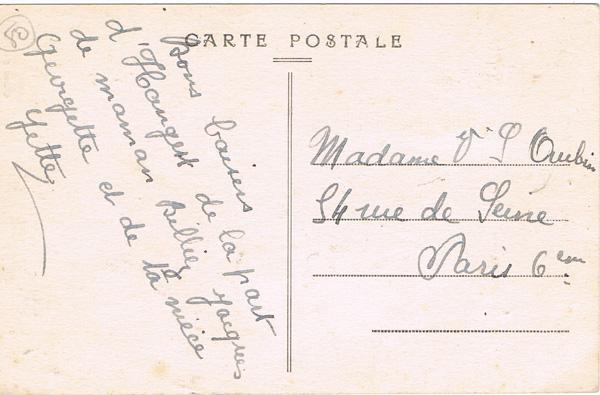 CARTE POSTALE
Bons baisers de la part
d'Hangest Jacques
de maman Billiez
Georgette et de ta nièce
Yette
Madame Vve Aubin
54 rue de Seine
Paris 6eme